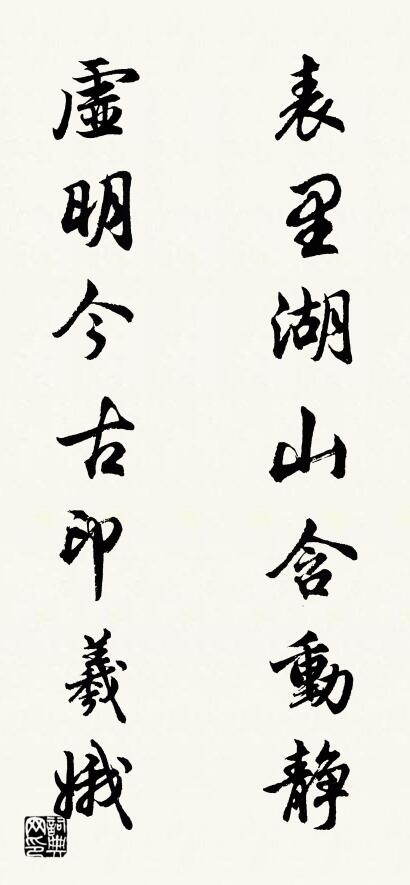 表里湖山含動静
虛明今古印羲娥
詞典網印